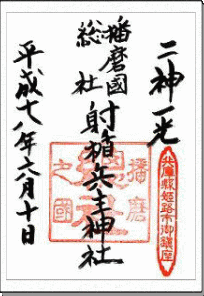 二神一光
兵庫縣姫路市御鎮座
播磨國
総社
射楯兵主神社
播磨
總社
之國
平成十八年六月十日